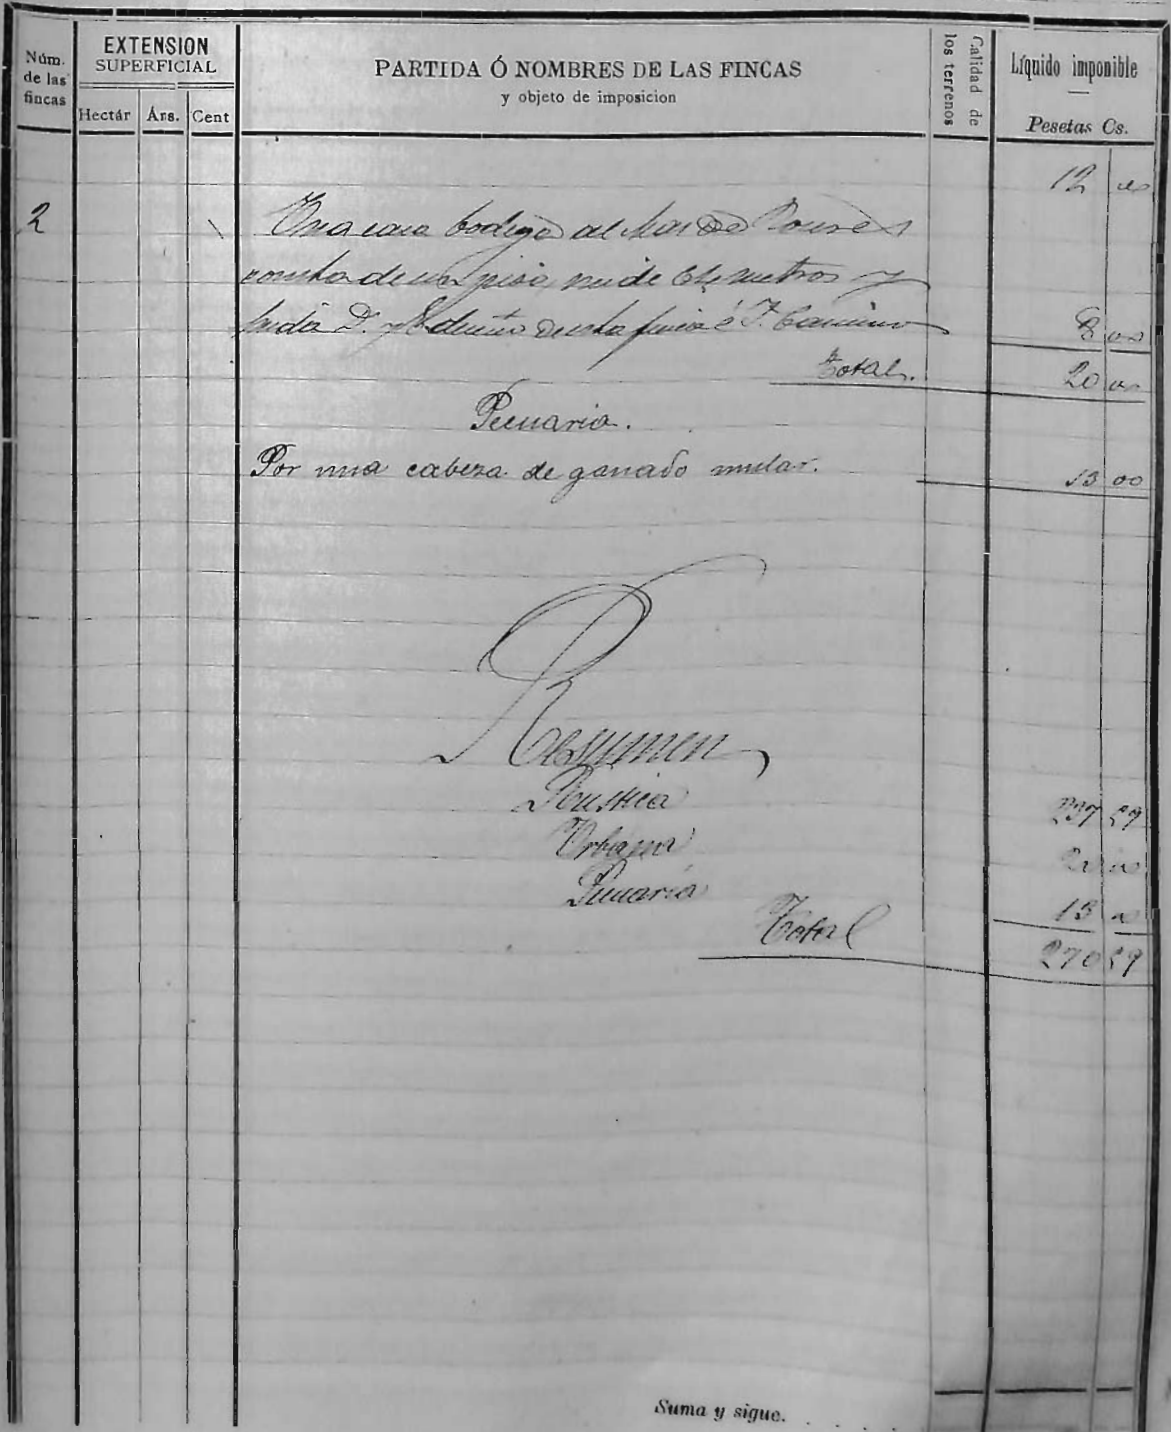 Núm. de las fincas
EXTENSION SUPERFICIAL
Hectár Árs. Cent
PARTIDA Ó NOMBRES DE LAS FINCAS
y objeto de imposicion
Calidad de los terrenos
Líquido imponible
Pesetas Cs.
12 00
2 Una casa bodega al Mas de
consta de un piso, mide metros y
linda D. y dueño de esta finca é F. Camino 8 00
Total. 20 00
Pecuaria.
Por una cabeza de ganado mular. 13 00
Resumen
Rustica 237 59
Urbana 20 00
Pecuaria 13 00
Total 270 59
Suma y sigue. . . . .